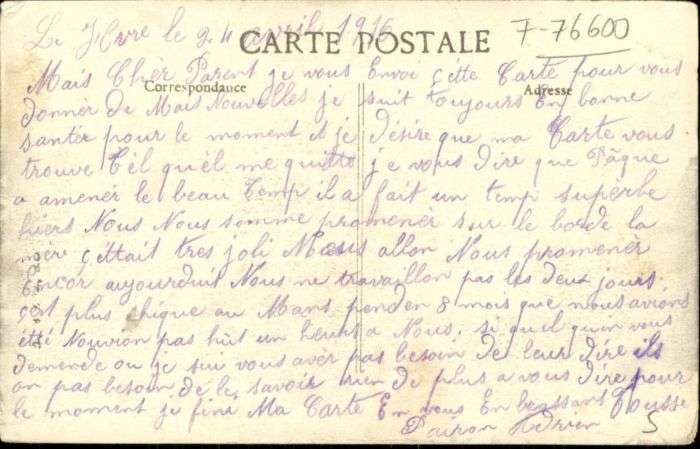 Le Havre le 24 avril 1916
7-76600
CARTE POSTALE
Correspondance
Adresse
Mais Chèr Parent je vous Envoi cétte Carte pour vous
donner de Mais Nouvelles je suit toujours En bonne
santér pour le moment et je désire que ma Carte vous
trouve Tél quél me quitte je vous dire que Pâque
a amener le beau Temp il a fait un temp superbe
hiers Nous Nous somme promenér sur le bord de la
mer c'éttait tres joli Nous allon Nous promenér
Encor aujourduit Nous ne travaillon pas les deux jours
çest plus chique au Mans penden 8 mois que nous avions
été Nouvion pas hüt un heurs a Nous. si quél quin vous
demende ou je sui vous avér pas besoin de leur dire ils
on pas besoin de le savoir rien de plus a vous dire pour
le moment je fini Ma Carte En vous En brassant Tousse
Adrien
5